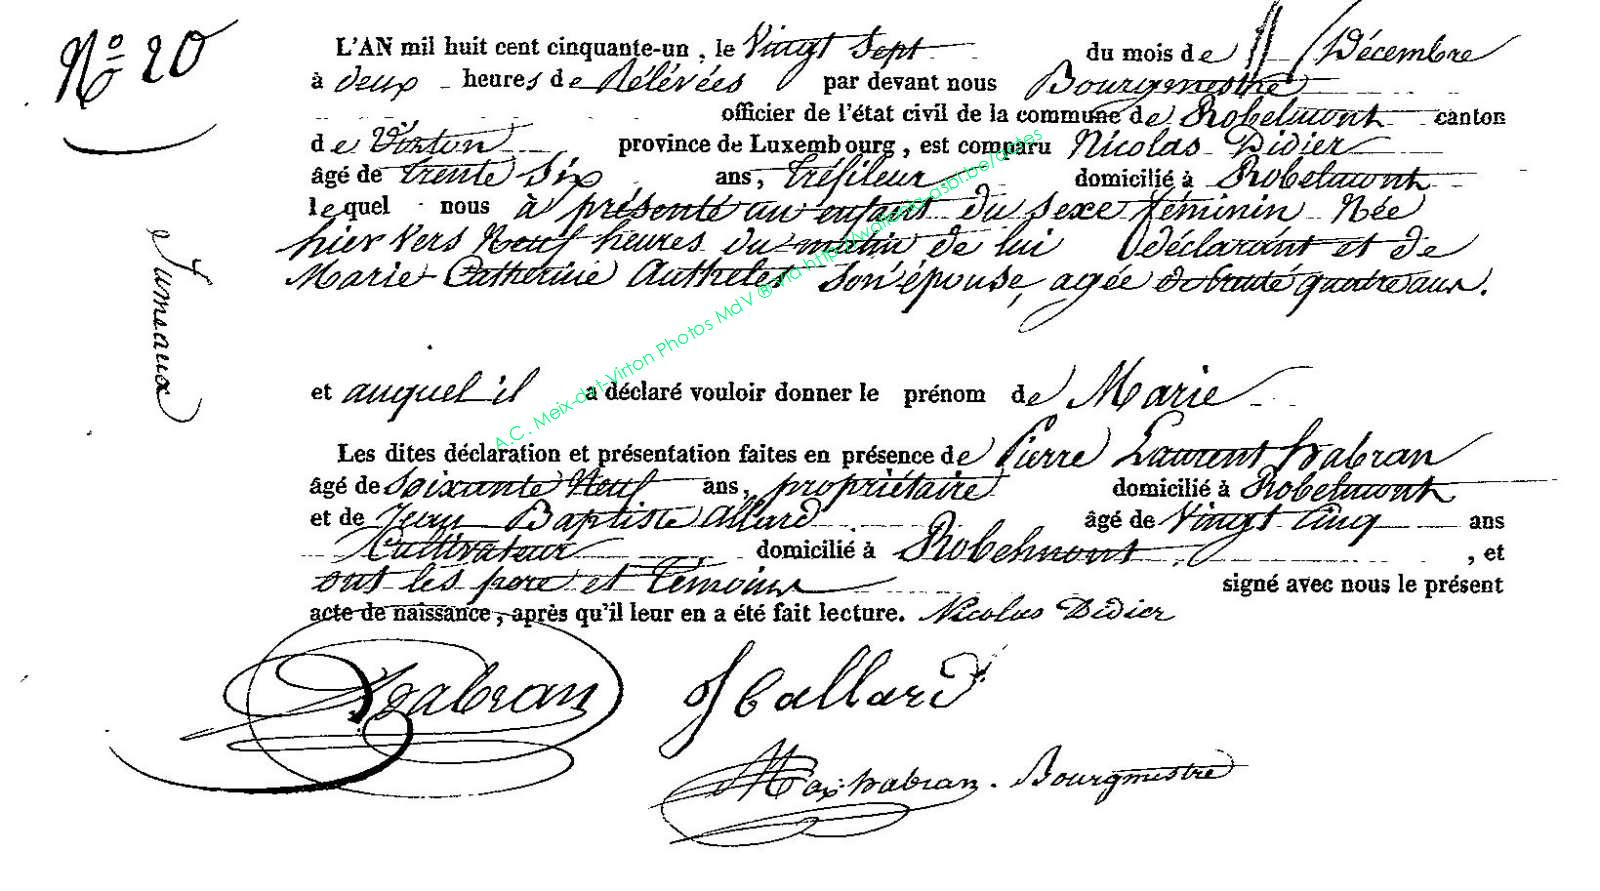 N° 20
L'AN mil huit cent cinquante-un, le Vingt Sept du mois de Décembre
à deux heures de Rélévées par devant nous Bourgmestre
officier de l'état civil de la commune de Robelmont canton
de Virton province de Luxembourg, est comparu Nicolas Didier
âgé de trente Six ans, Tréfileur domicilié à Robelmont
lequel nous à présenté un enfant du sexe féminin Née
hier vers Neuf heures du matin de lui déclarant et de
Marie Catherine Authelet son épouse, agée de trente quatre ans.
Jumeaux
et auquel il a déclaré vouloir donner le prénom de Marie
Les dites déclaration et présentation faites en présence de Pierre Laurent habran
âgé de Soixante Neuf ans, propriétaire domicilié à Robelmont
et de Jean Baptiste allard âgé de Vingt Cinq ans
Cultivateur domicilié à Robelmont, et
ont les pere et Témoins signé avec nous le présent
acte de naissance, après qu'il leur en a été fait lecture. Nicolas Didier
habran
J B allard
Max habran. Bourgmestre
A.C. Meix-dvt-Virton Photos MdV ® via http://wallonia-asbl.be/actes